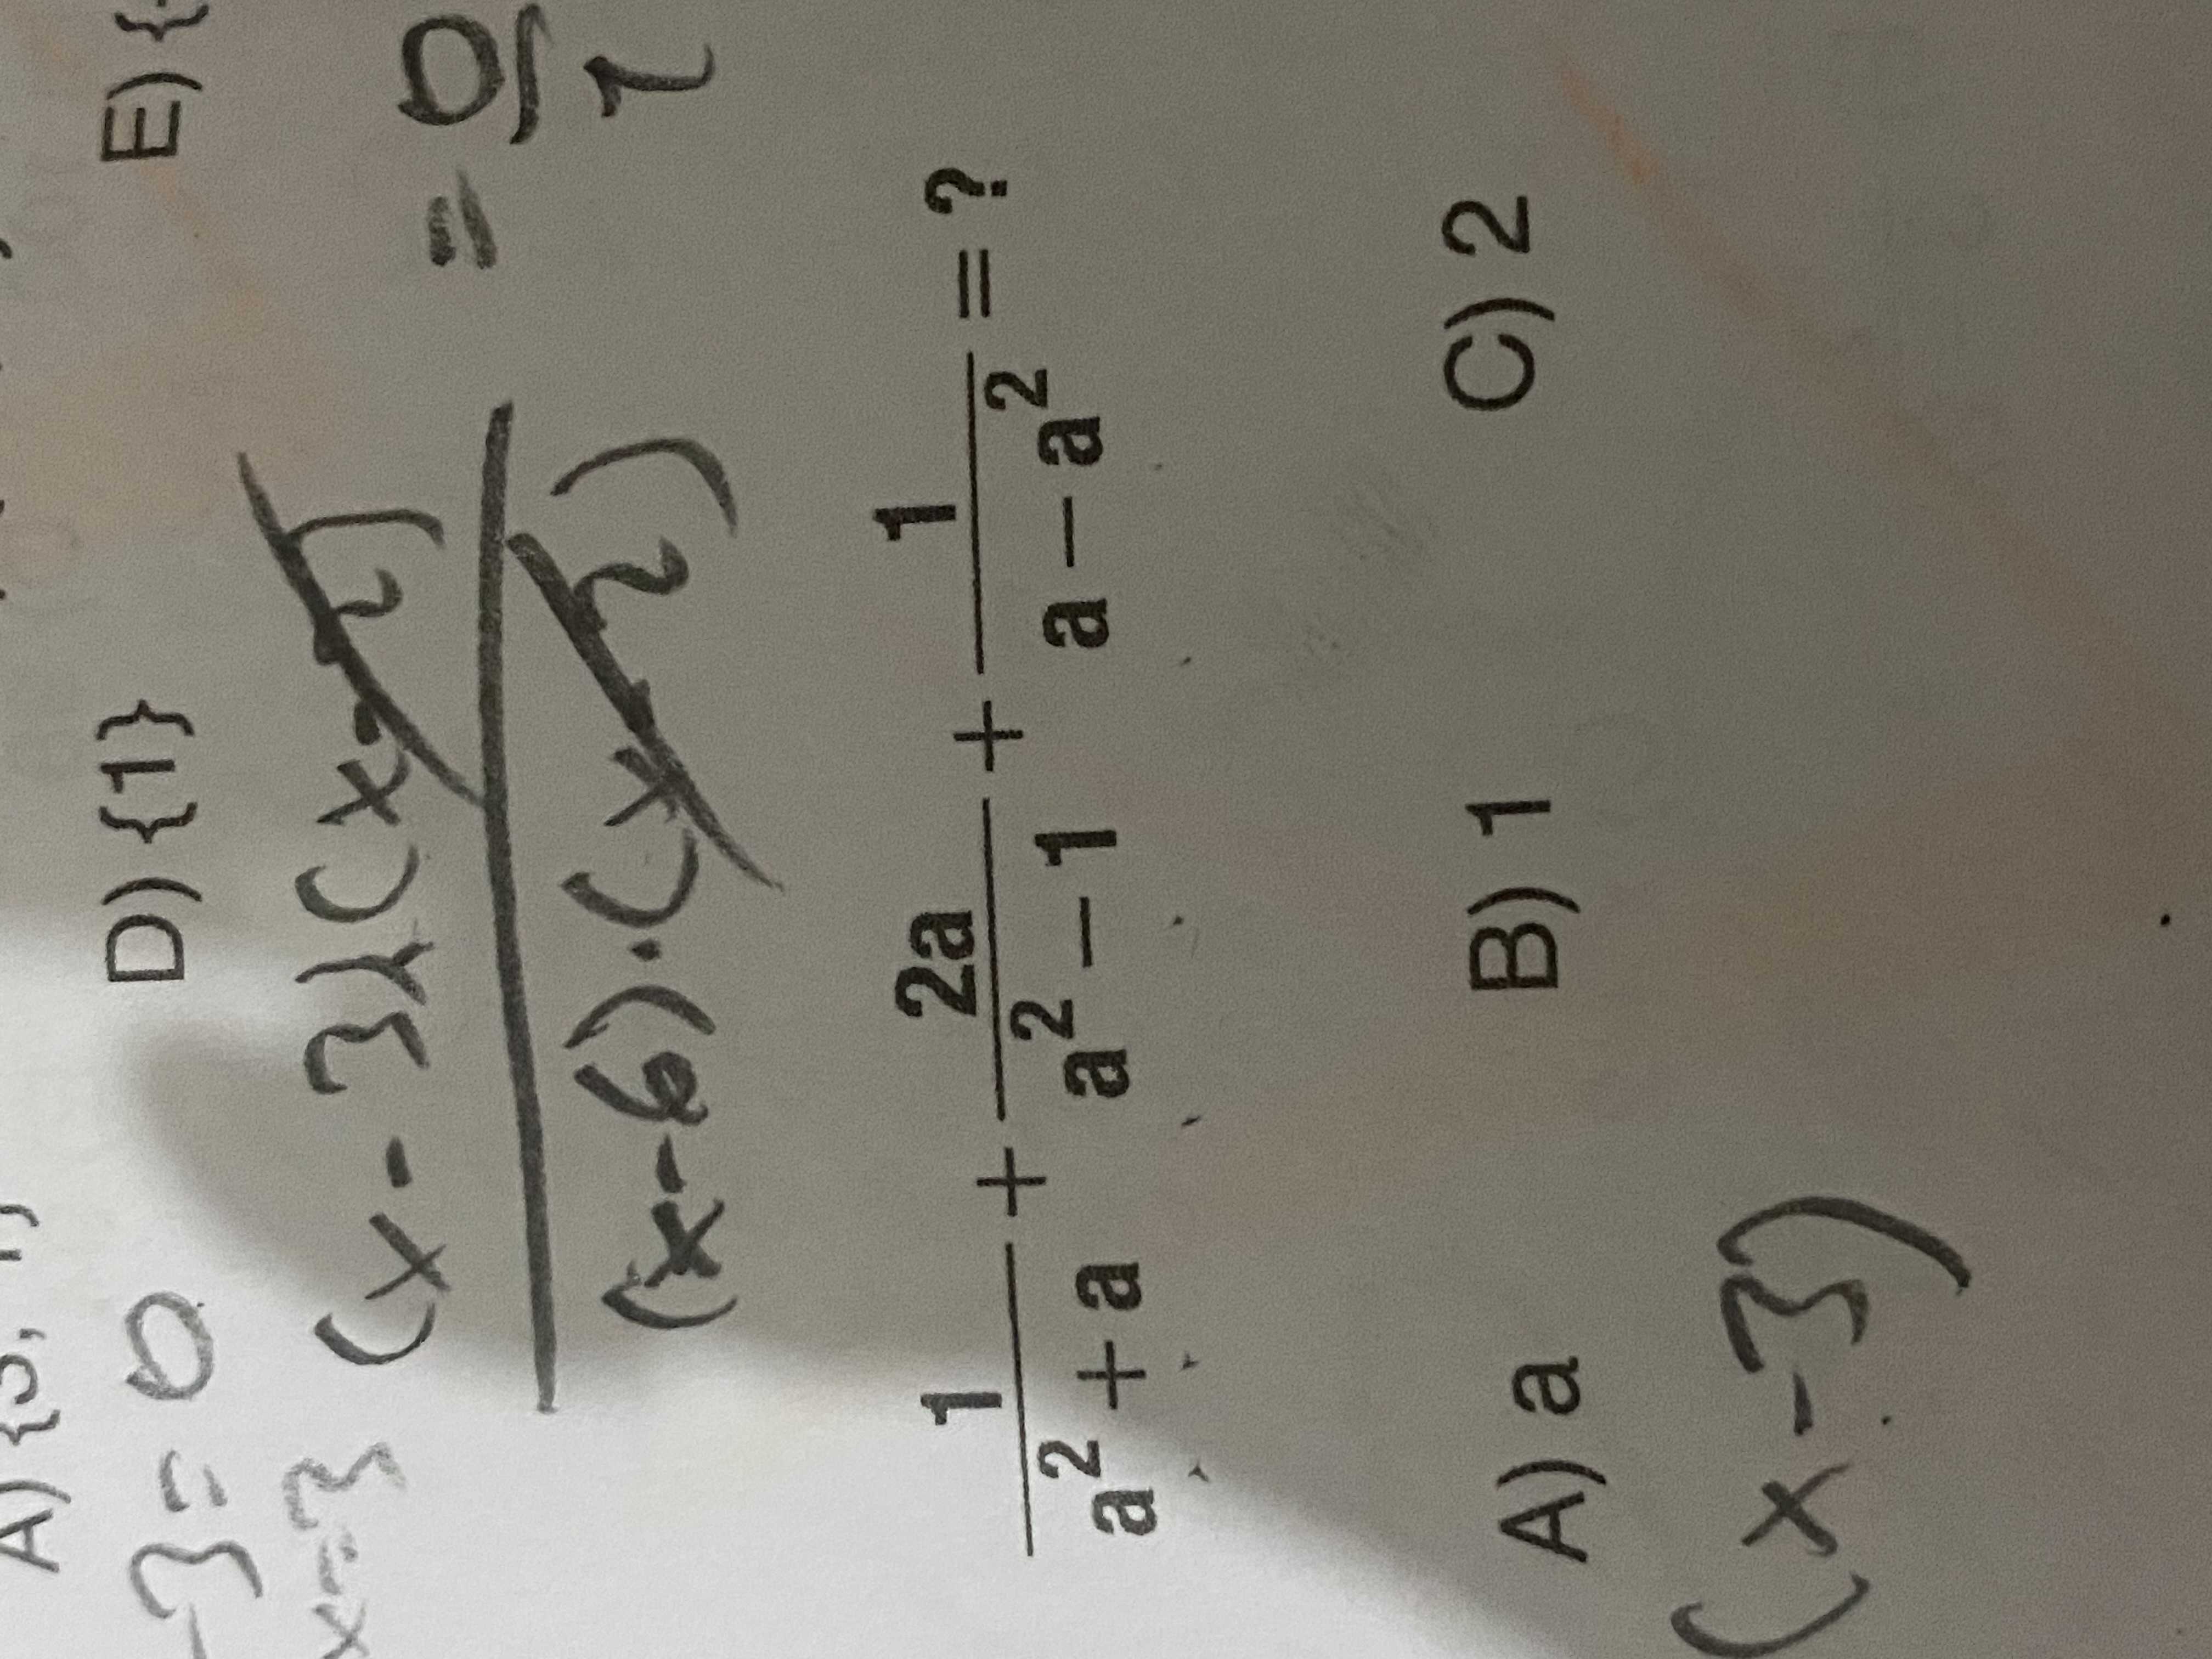 A) {3,
D) {1}
E) {
-3 = 0
x=3
(x - 3)(x-2) / (x-6).(x-2) = 0/1
1/(a² + a) + 2a/(a² - 1) + 1/(a - a²) = ?
A) a
B) 1
C) 2
(x-3)